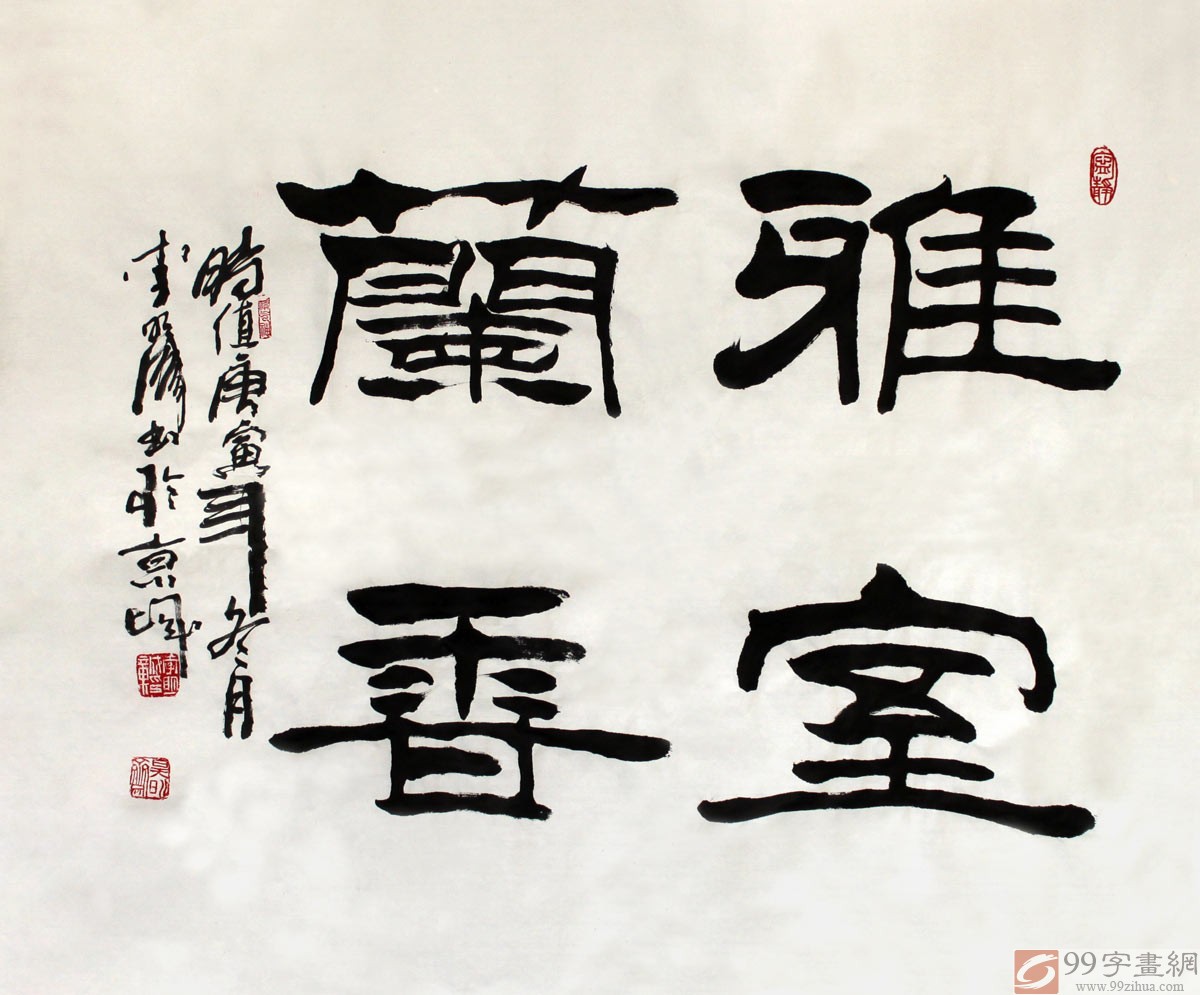 雅室
蘭香
時值庚寅年冬月
書於京城
99字畫網
www.99zihua.com